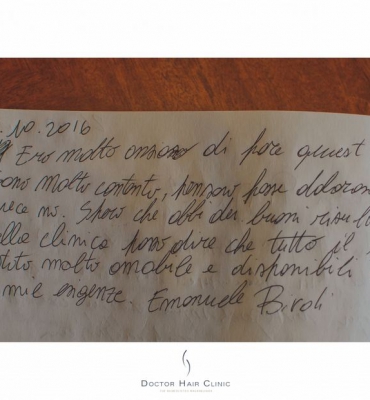 .10.2016
Ero molto ansioso di fare quest
sono molto contento, pensavo fosse doloroso
veca no. Spero che abbi dei buoni risult
ella clinica posso dire che tutto il
molto amabile e disponibili
mie esigenze. Emanuele Biroli
DOCTOR HAIR CLINIC